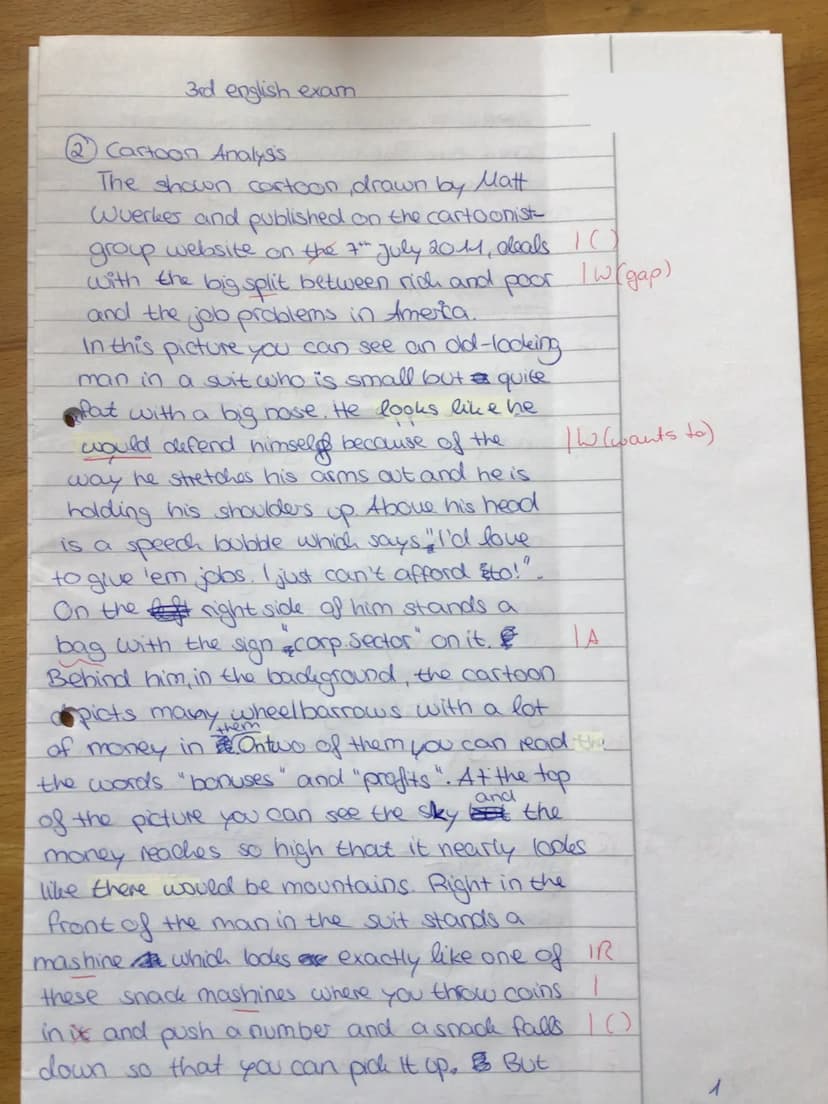 3rd english exam
② Cartoon Analysis
The shown cartoon, drawn by Matt
Wuerker and published on the cartoonist-
group website on the 7th July 2011, deals I ( )
with the big split between rich and poor I W (gap)
and the job problems in America.
In this picture you can see an old-looking
man in a suit who is small but quite
fat with a big nose. He looks like he
would defend himself because of the I W (wants to)
way he stretches his arms out and he is
holding his shoulders up. Above his head
is a speech bubble which says „I'd love
to give 'em jobs. I just can't afford to!".
On the left right side of him stands a
bag with the sign "corp. sector" on it. I A
Behind him, in the background, the cartoon
depicts many wheelbarrows with a lot
of money in them On two of them you can read the
the words "bonuses" and "profits". At the top
of the picture you can see the sky and the
money reaches so high that it nearly looks
like there would be mountains. Right in the
front of the man in the suit stands a
mashine which looks exactly like one of I R
these snack mashines where you throw coins I
in it and push a number and a snack falls I ( )
down so that you can pick it up. But
1